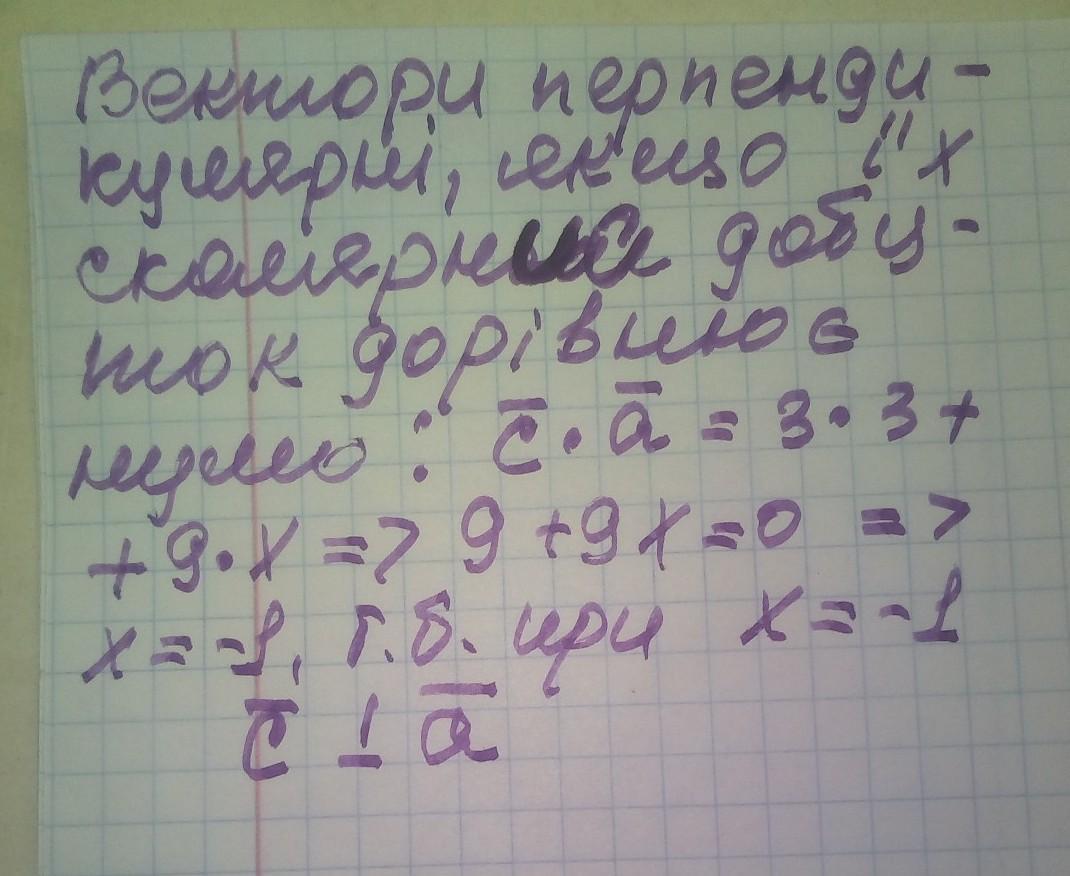 Вектори перпенди-
кулярні, якщо їх
скалярний добу-
ток дорівнює
нулю : c̅ · a̅ = 3 · 3 +
+ 9 · x => 9 + 9x = 0 =>
x = -1, т.б. при x = -1
c̅ ⊥ a̅